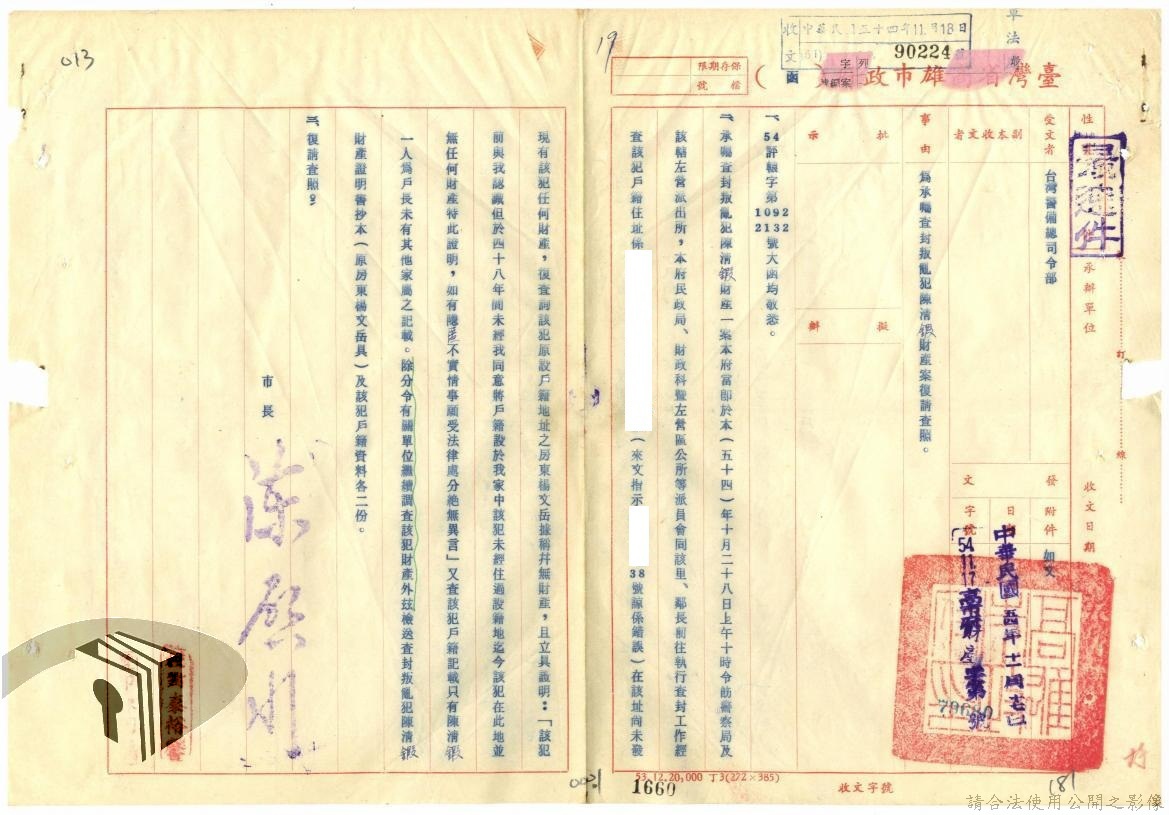 收 中華民國五十四年11月18日
文 (51) 90224 號
臺灣省高雄市政府(函)
保存期限
檔號
最速件
受文者 台灣警備總司令部
副本收文者
批示
擬辦
承辦單位
收文日期
發文
日期
字號
附件 如文
中華民國五四年十一月十七日
54.11.17 高市財產字第號
79680
事由 為承囑查封叛亂犯陳清鍜財產案復請查照。
一、54評輾字第1092 2132號大函均敬悉。
二、承囑查封叛亂犯陳清鍜財產一案本府當即於本(五十四)年十月二十八日上午十時令飭警察局及
該轄左營派出所,本府民政局、財政科暨左營區公所等派員會同該里、鄰長前往執行查封工作經
查該犯戶籍住址係(來文指示38號諒係錯誤)在該址尚未發
現有該犯任何財產,復查詢該犯原設戶籍地址之房東楊文岳據稱并無財產,且立具證明:「該犯
前與我認識但於四十八年間未經我同意將戶籍設於我家中該犯未經住過設籍地迄今該犯在此地並
無任何財產特此證明,如有隱匿不實情事願受法律處分絕無異言」又查該犯戶籍記載只有陳清鍜
一人為戶長未有其他家屬之記載。除分令有關單位繼續調查該犯財產外茲檢送查封叛亂犯陳清鍜
財產證明書抄本(原房東楊文岳具)及該犯戶籍資料各二份。
三、復請查照。
市長 陳啓川
訂
線
53.12.20,000 丁3(272×385)
1660
收文字號
013
19
181
請合法使用公開之影像